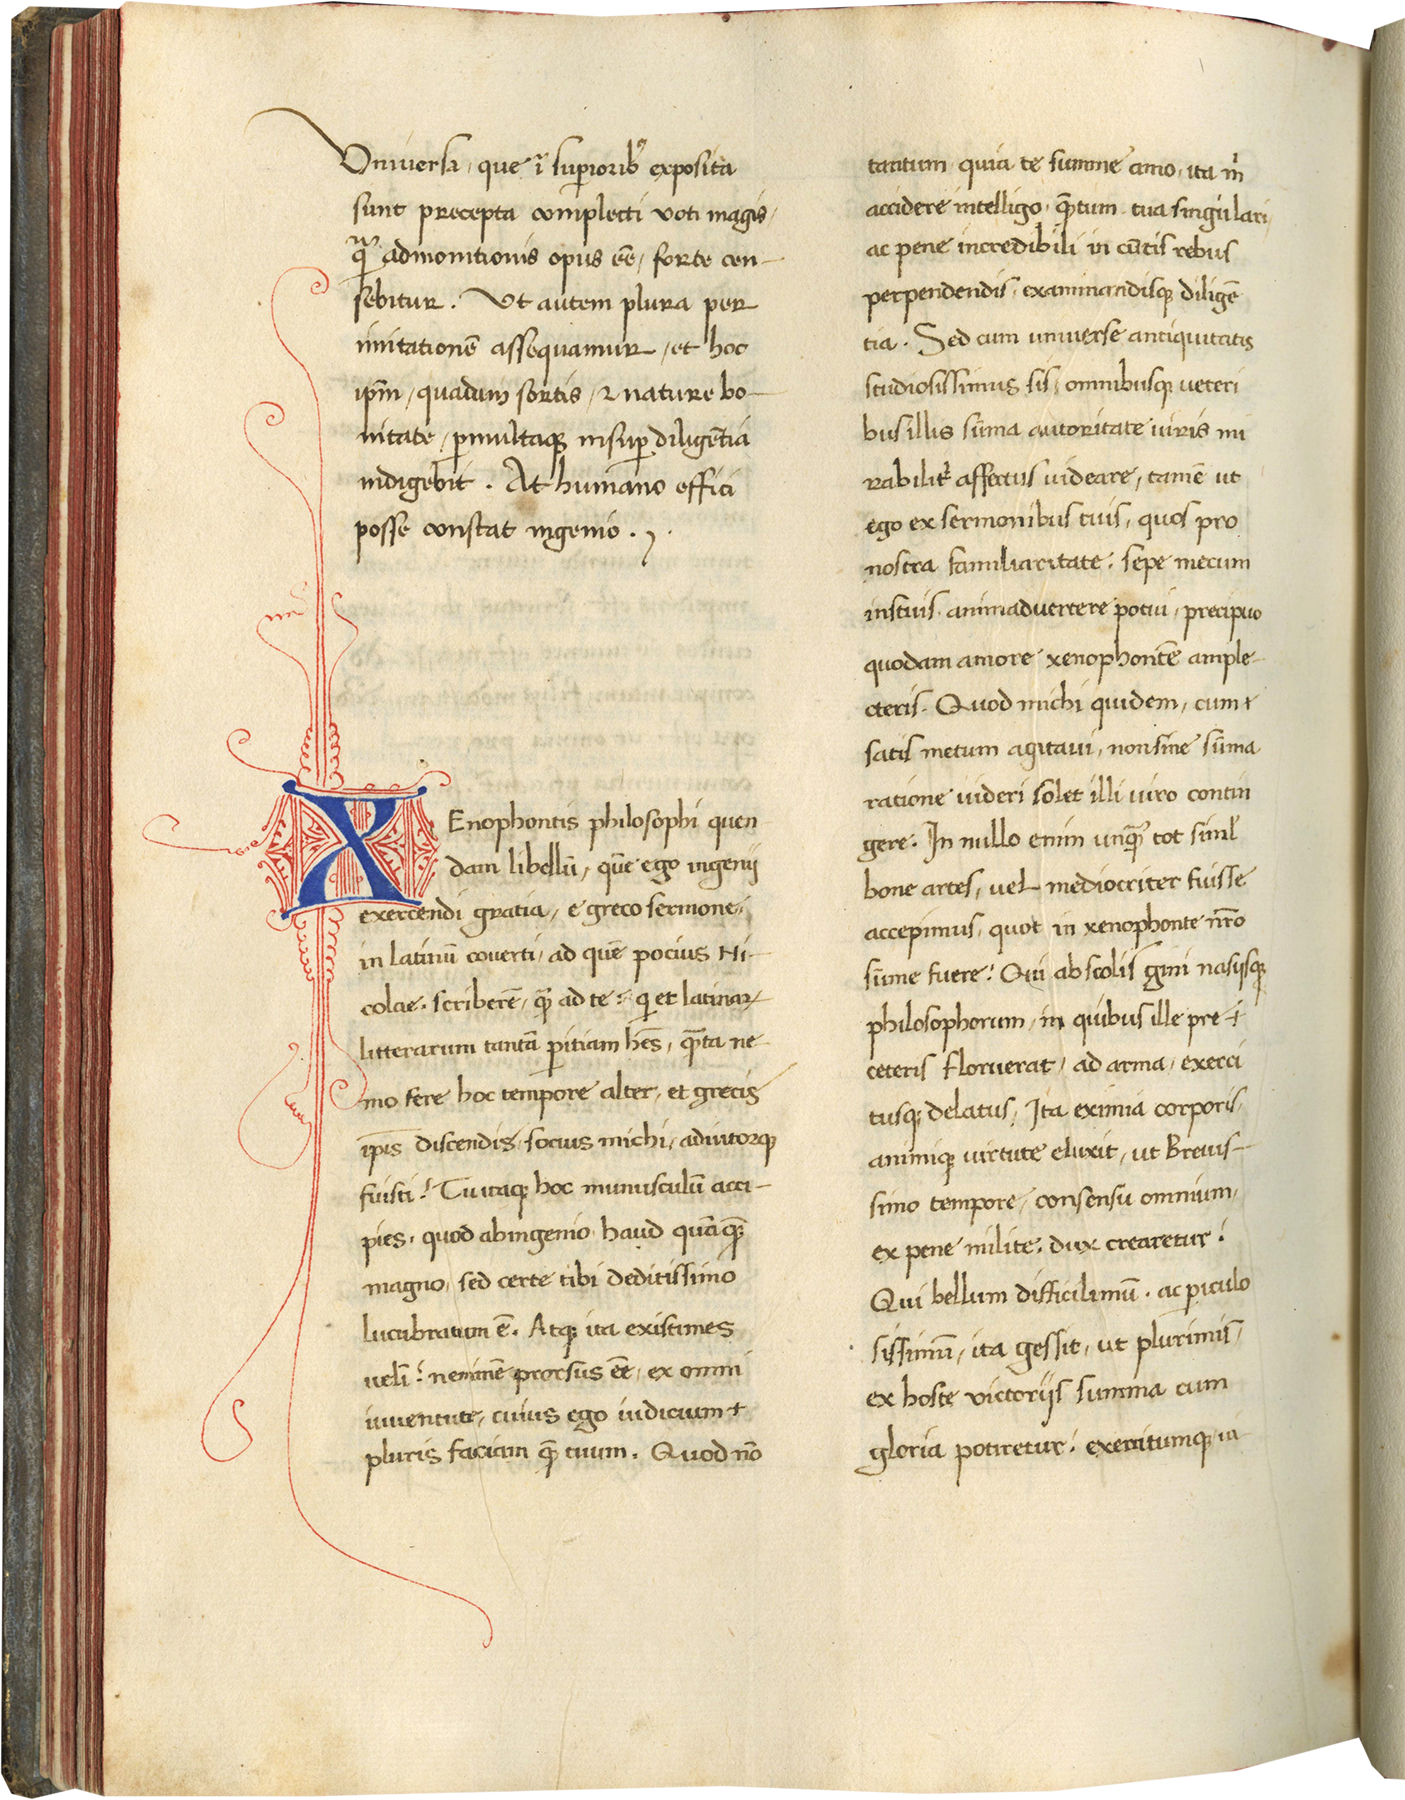 Universa, que ī superiorib9 exposita
sunt precepta complecti voti magis,
q̄ꝫ admonitionis opus eē, forte cen-
sebitur. Ut autem plura per
imitationē assequamur, et hoc
ip̄m, quadam sortis, ⁊ nature bo-
nitate, ꝑmultaqꝫ insuꝑ diligētia
indigebit. At humano effici
posse constat ingenio.
XEnophontis philosophi quen
dam libellū, quē ego ingenij
exercendi gratia, e greco sermone,
in latinū cōverti, ad quē pocius Ni-
colae, scriberē, q̄ꝫ ad te? qi et latinaꝝ
litterarum tantā ꝑitiam hēs, q̄ꝫta ne-
mo fere hoc tempore alter, et grecis
ip̄is discendis, socius michi, adiutorqꝫ
fuisti? Tu itaqꝫ hoc munusculū acci-
pies, quod ab ingenio haud quāq̄ꝫ
magno, sed certe tibi deditissimo
lucubratum ē. Atqꝫ ita existimes
velī? neminē prorsus eē, ex omni
iuventute, cuius ego iudicium
pluris faciam q̄ꝫ tuum. Quod nō
tantum quia te summe amo, ita m̄
accidere intelligo, q̄ꝫtum tua singulari,
ac pene incredibili in cūtis rebus
perpendendis, examinandisqꝫ diligē
tia. Sed cum universe antiquitatis
studiosissimus sis, omnibusqꝫ veteri
bus illis sūma autoritate viris mi
rabilit̉ affectus videare, tamē ut
ego ex sermonibus tuis, quos pro
nostra familiaritate, sepe mecum
instuis animadvertere potui, precipuo
quodam amore xenophontē ample-
cteris. Quod michi quidem, cum
satis mecum agitavi, non sine sūma
ratione videri solet illi viro contin
gere. In nullo enim unq̄ꝫ tot simł
bone artes, vel mediocriter fuisse
accepimus, quot in xenophonte nr̄o
sūme fuere? Qui ab scolis gīni nasijsqꝫ
philosophorum, in quibus ille pre
ceteris floruerat, ad arma, exerci
tusqꝫ delatus, Ita eximia corporis,
animiqꝫ virtute eluxit, ut brevis-
simo tempore, consensu omnium,
ex pene milite, dux crearetur?
Qui bellum difficilimū, ac ꝑiculo
sissimū, ita gessit, ut plurimis,
ex hoste victorijs summa cum
gloria potiretur? exercitumqꝫ ia